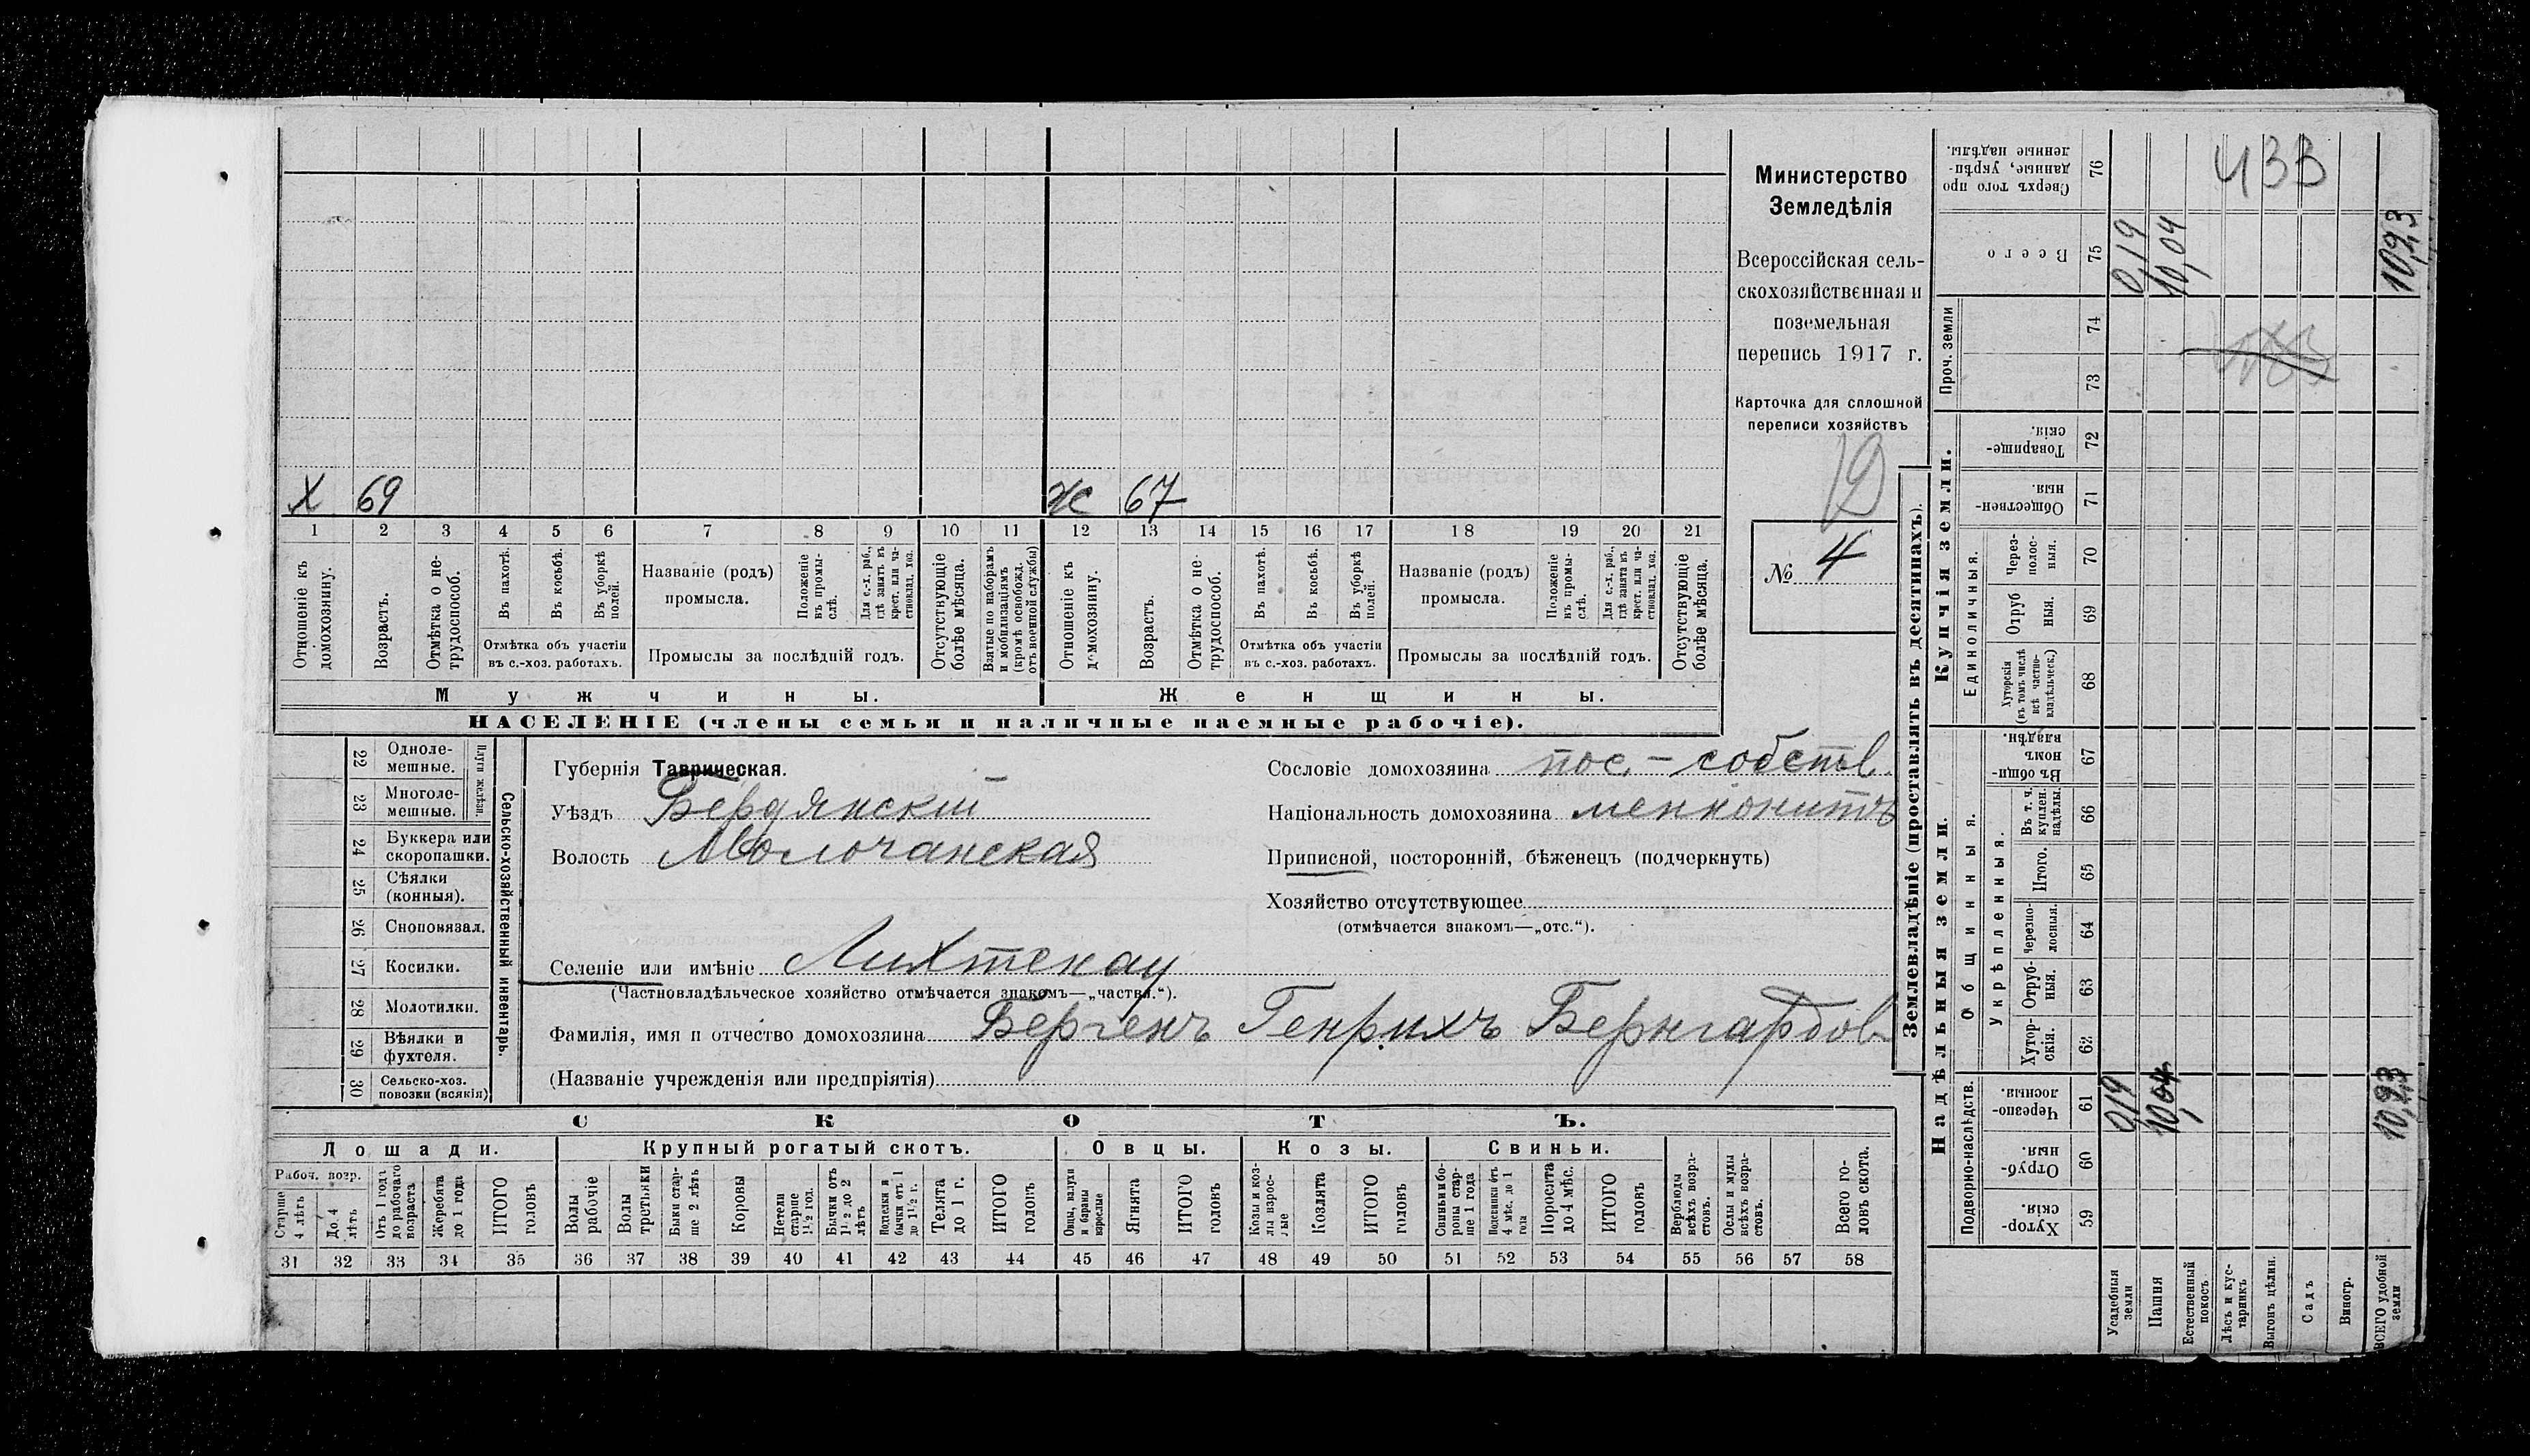 Х 69 Ж 67
1 2 3 4 5 6 7 8 9 10 11 12 13 14 15 16 17 18 19 20 21
Отношеніе къ домохозяину.
Возрастъ.
Отмѣтка о не-
трудоспособ.
Въ пахотѣ.
Въ косьбѣ.
Въ уборкѣ
полей.
Отмѣтка объ участіи
въ с.-хоз. работахъ.
Названіе (родъ)
промысла.
Положеніе
въ промы-
слѣ.
Для с.-х. раб.,
гдѣ занятъ въ
крест. или ча-
стновлад. хоз.
Промыслы за послѣдній годъ.
Отсутствующіе
болѣе мѣсяца.
Взятые по наборамъ
и мобилизаціямъ
(кромѣ освобожд.
отъ военной службы)
Отношеніе къ
домохозяину.
Возрастъ.
Отмѣтка о не-
трудоспособ.
Въ пахотѣ.
Въ косьбѣ.
Въ уборкѣ
полей.
Отмѣтка объ участіи
въ с.-хоз. работахъ.
Названіе (родъ)
промысла.
Положеніе
въ промы-
слѣ.
Для с.-х. раб.,
гдѣ занята въ
крест. или ча-
стновлад. хоз.
Промыслы за послѣдній годъ.
Отсутствующіе
болѣе мѣсяца.
Мужчины. Женщины.
НАСЕЛЕНІЕ (члены семьи и наличные наемные рабочіе).
Министерство
Земледѣлія
Всероссійская сель-
скохозяйственная и
поземельная
перепись 1917 г.
Карточка для сплошной
переписи хозяйствъ
12
№ 4
22 Одноле-
мешные.
23 Многоле-
мешные.
Плуги желѣзн.
24 Буккера или
скоропашки.
25 Сѣялки
(конныя).
26 Сноповязал.
27 Косилки.
28 Молотилки.
29 Вѣялки и
фухтеля.
30 Сельско-хоз.
повозки (всякія)
Сельско-хозяйственный инвентарь.
Губернія Таврическая.
Уѣздъ Бердянскій
Волость Молочанская
Селеніе или имѣніе Лихтенау
(Частновладѣльческое хозяйство отмѣчается знакомъ—„частвл.“).
Фамилія, имя и отчество домохозяина Бергенъ Генрихъ Бернгардов
(Названіе учрежденія или предпріятія)
Сословіе домохозяина пос.-собств.
Національность домохозяина меннонитъ
Приписной, посторонній, бѣженецъ (подчеркнуть)
Хозяйство отсутствующее
(отмѣчается знакомъ—„отс.“).
СКОТЪ.
Лошади. Крупный рогатый скотъ. Овцы. Козы. Свиньи.
Рабоч. возр.
Старше
4 лѣтъ
До 4
лѣтъ
Отъ 1 года
до рабочаго
возраста
Жеребята
до 1 года
ИТОГО
головъ
Волы
рабочіе
Волы
третьяки
Быки стар-
ше 2 лѣтъ
Коровы
Нетели
старше
1½ год.
Бычки отъ
1½ до 2
лѣтъ
Подтелки и
бычки отъ 1
до 1½ г.
Телята
до 1 г.
ИТОГО
головъ
Овцы, валухи
и бараны
взрослые
Ягнята
ИТОГО
головъ
Козы и коз-
лы взрос-
лые
Козлята
ИТОГО
головъ
Свиньи и бо-
ровы стар-
ше 1 года
Подсвинки отъ
4 мѣс. до 1
года
Поросята
до 4 мѣс.
ИТОГО
головъ
Верблюды
всѣхъ возра-
стовъ.
Ослы и мулы
всѣхъ возра-
стовъ.
Всего го-
ловъ скота.
31 32 33 34 35 36 37 38 39 40 41 42 43 44 45 46 47 48 49 50 51 52 53 54 55 56 57 58
Землевладѣніе (проставлять въ десятинахъ).
Надѣльныя земли. Купчія земли.
Проч. земли
Подворно-наслѣдств.
Общинныя.
Укрѣпленныя.
Единоличныя.
Сверхъ того про
данные, укрѣп-
ленные надѣлы.
76
Всего
75 0,19 10,04 10,23
433
74
73
Товарище-
скія.
72
Обществен-
ныя.
71
Через-
полос-
ныя.
70
Отруб
ныя.
69
Хуторскія
(въ томъ числѣ
всѣ частно-
владѣльческ.)
68
Въ общи-
номъ
владѣн.
67
Въ т. ч.
куплен.
надѣлы.
66
Итого.
65
Черезпо-
лосныя.
64
Отруб-
ныя.
63
Хутор-
скія.
62
Черезпо-
лосныя.
61 0,19 10,04 10,23
Отруб-
ныя.
60
Хутор-
скія.
59
Усадебныя
земли
Пашня
Естественный
покосъ
Лѣсъ и кус-
тарникъ
Выгонъ цѣлин.
Садъ
Виногр.
ВСЕГО удобной
земли